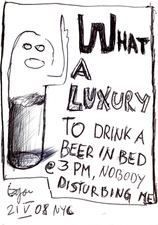 WHAT
A
LUXURY
TO DRINK A
BEER IN BED
@ 3 PM, NOBODY
DISTURBING ME
21 V 08 NYC